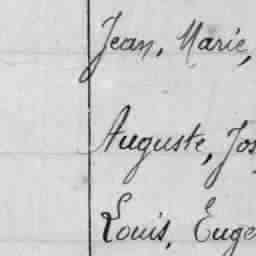 Jean, Marie,
Auguste, Jos
Louis, Euge